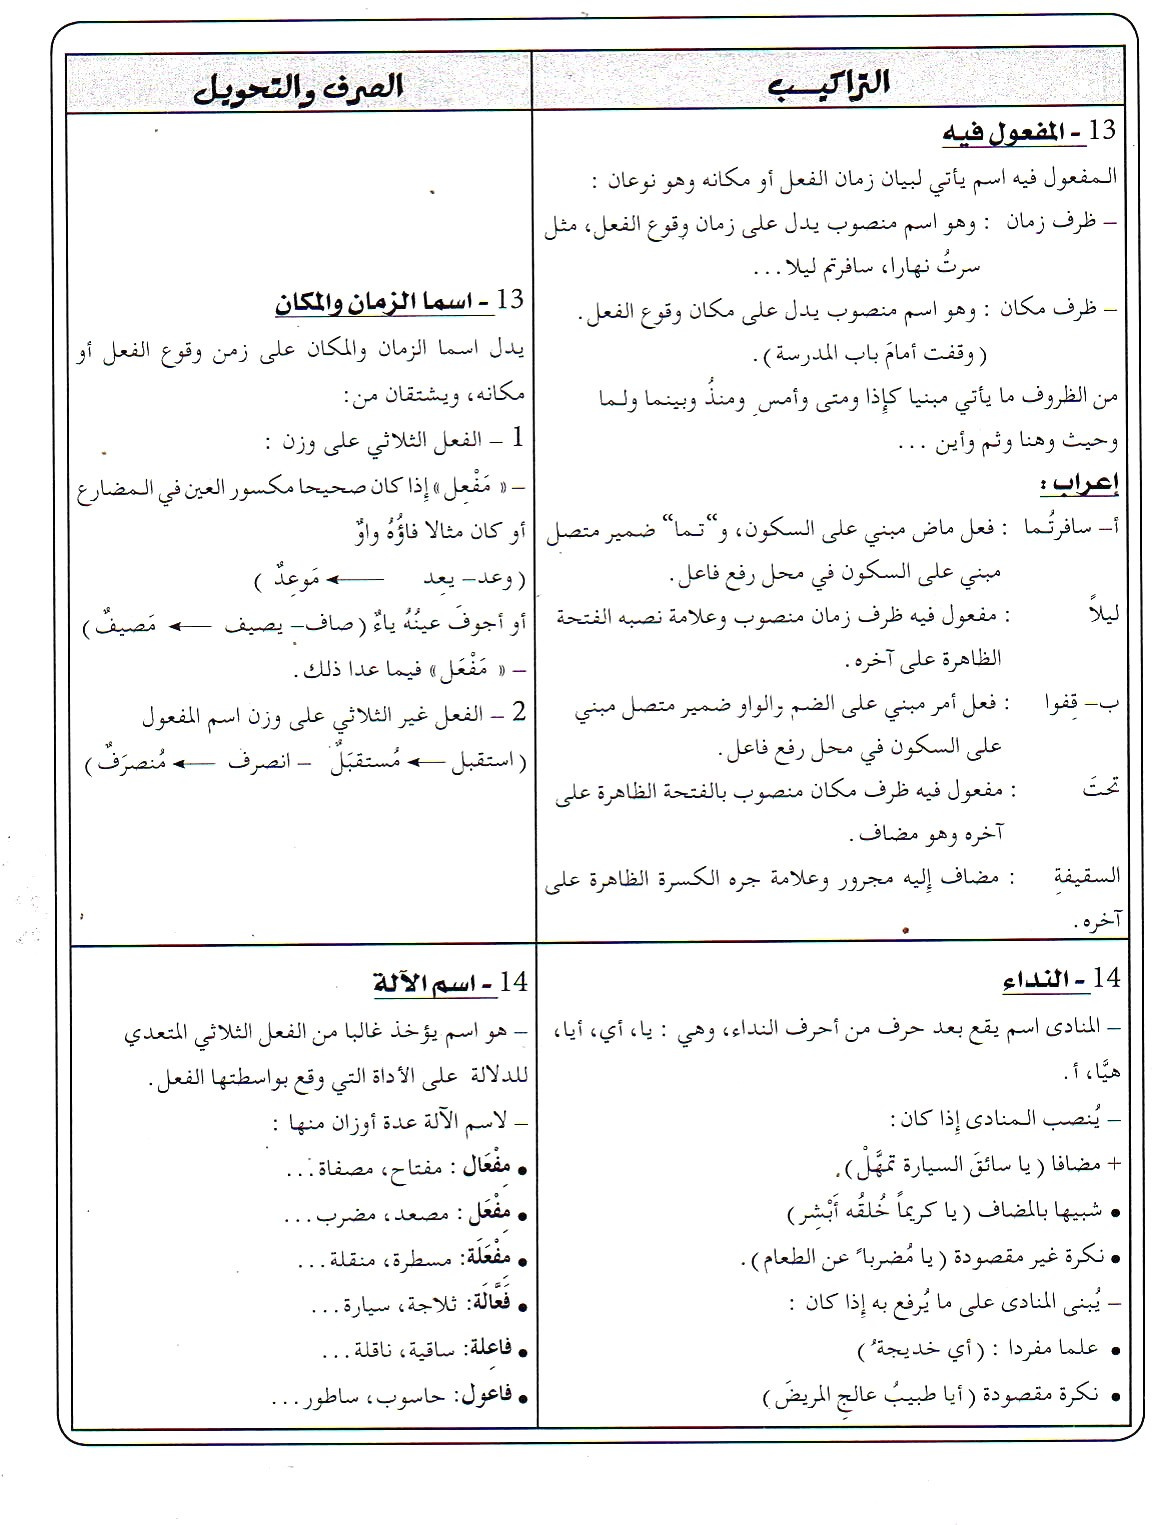 التراكيب
13 - المفعول فيه
المفعول فيه اسم يأتي لبيان زمان الفعل أو مكانه وهو نوعان :
– ظرف زمان : وهو اسم منصوب يدل على زمان وقوع الفعل، مثل
سرتُ نهارا، سافرتم ليلا...
– ظرف مكان : وهو اسم منصوب يدل على مكان وقوع الفعل.
( وقفت أمامَ باب المدرسة ).
من الظروف ما يأتي مبنيا كإذا ومتى وأمسِ ومنذُ وبينما ولما
وحيث وهنا وثم وأين ...
إعراب :
أ– سافرتُما : فعل ماض مبني على السكون، و“تما“ ضمير متصل
مبني على السكون في محل رفع فاعل.
ليلاً : مفعول فيه ظرف زمان منصوب وعلامة نصبه الفتحة
الظاهرة على آخره.
ب– قِفوا : فعل أمر مبني على الضم والواو ضمير متصل مبني
على السكون في محل رفع فاعل.
تحتَ : مفعول فيه ظرف مكان منصوب بالفتحة الظاهرة على
آخره وهو مضاف.
السقيفةِ : مضاف إليه مجرور وعلامة جره الكسرة الظاهرة على
آخره.
الصرف والتحويل
13 - اسما الزمان والمكان
يدل اسما الزمان والمكان على زمن وقوع الفعل أو
مكانه، ويشتقان من:
1 – الفعل الثلاثي على وزن :
– « مَفْعِل » إذا كان صحيحا مكسور العين في المضارع
أو كان مثالا فاؤُهُ واوٌ
( وعد– يعِد ← مَوعِدٌ )
أو أجوفَ عينُهُ ياءٌ ( صاف– يصيف ← مَصيفٌ )
– « مَفْعَل » فيما عدا ذلك.
2 – الفعل غير الثلاثي على وزن اسم المفعول
( استقبل ← مُستقبَلٌ – انصرف ← مُنصرَفٌ )
14 - النداء
– المنادى اسم يقع بعد حرف من أحرف النداء، وهي : يا، أي، أيا،
هيَّا، أ.
– يُنصب المنادى إذا كان:
+ مضافا ( يا سائقَ السيارة تمهَّلْ ).
• شبيها بالمضاف ( يا كريماً خُلقُه أَبْشِر )
• نكرة غير مقصودة ( يا مُضرباً عن الطعام ).
– يُبنى المنادى على ما يُرفع به إذا كان :
• علما مفردا : ( أي خديجةُ )
• نكرة مقصودة ( أيا طبيبُ عالجِ المريضَ )
14 - اسم الآلة
– هو اسم يؤخذ غالبا من الفعل الثلاثي المتعدي
للدلالة على الأداة التي وقع بواسطتها الفعل.
– لاسم الآلة عدة أوزان منها :
• مِفْعَال : مفتاح، مصفاة...
• مِفْعَل : مصعد، مضرب...
• مِفْعَلَة: مسطرة، منقلة...
• فَعَّالَة: ثلاجة، سيارة...
• فاعِلة: ساقية، ناقلة...
• فاعول: حاسوب، ساطور...